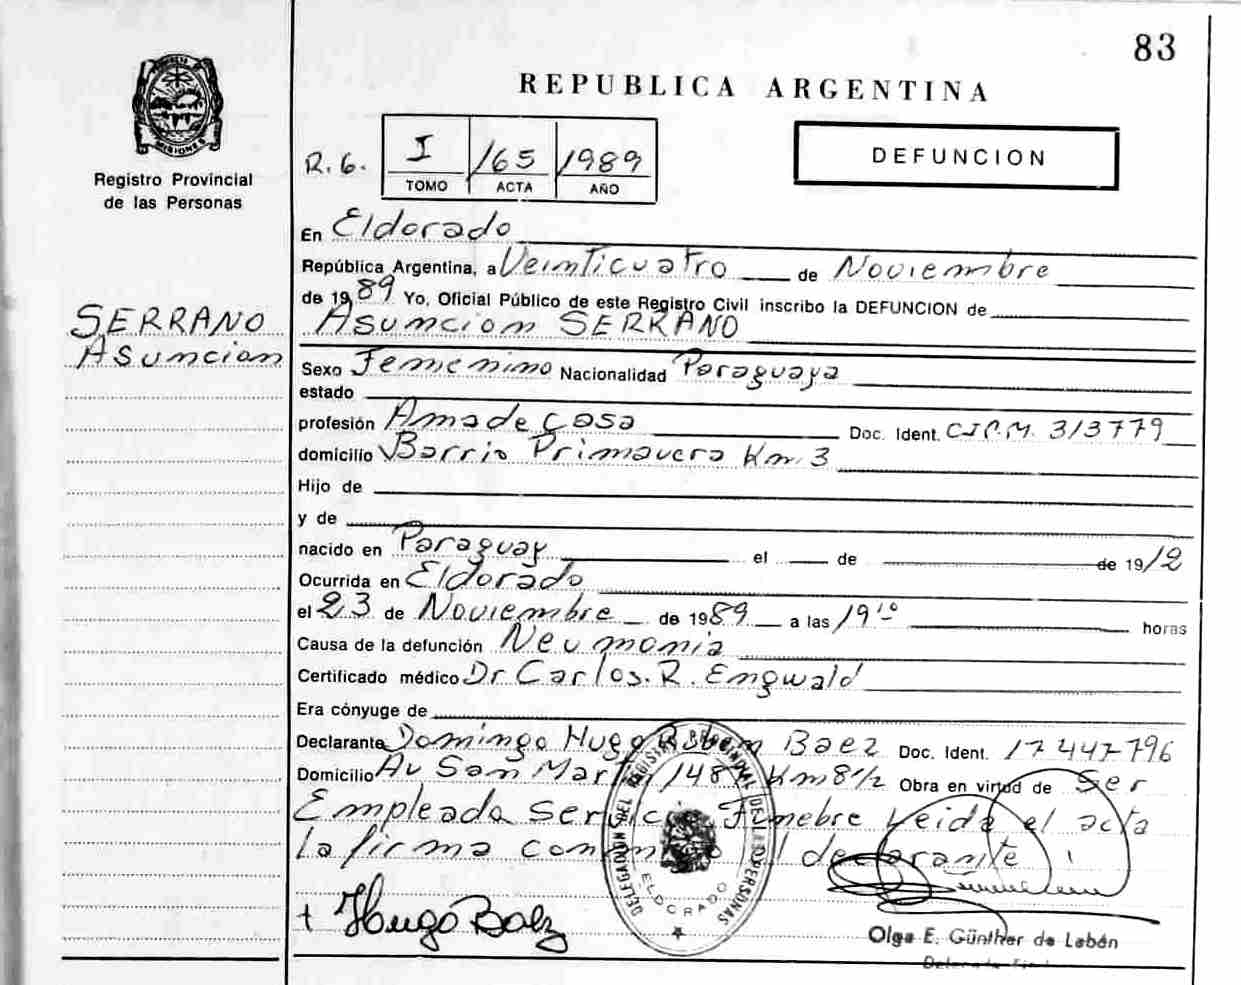 83
REPUBLICA ARGENTINA
PROVINCIA DE MISIONES
Registro Provincial
de las Personas
R. G. I 165 1989
TOMO ACTA AÑO
DEFUNCION
SERRANO
Asuncion
En Eldorado
República Argentina, a Veinticuatro de Noviembre
de 1989 Yo, Oficial Público de este Registro Civil inscribo la DEFUNCION de
Asuncion SERRANO
Sexo Femenino Nacionalidad Paraguaya
estado
profesión Ama de casa Doc. Ident. 313779
domicilio Barrio Primavera Km. 3
Hijo de
y de
nacido en Paraguay el de de 1912
Ocurrida en Eldorado
el 23 de Noviembre de 1989 a las 19 10 horas
Causa de la defunción Neumonia
Certificado médico Dr Carlos. R. Engwald
Era cónyuge de
Declarante Domingo Hugo Ruben Baez Doc. Ident. 17447796
Domicilio Av San Martin 148 Km 8 1/2 Obra en virtud de Ser
Empleado Servicio Funebre Leida el acta
la firma conmigo el declarante
DELEGACION DEL REGISTRO PROVINCIAL DE LAS PERSONAS
ELDORADO
Hugo Baez
Olga E. Günther de Lebén